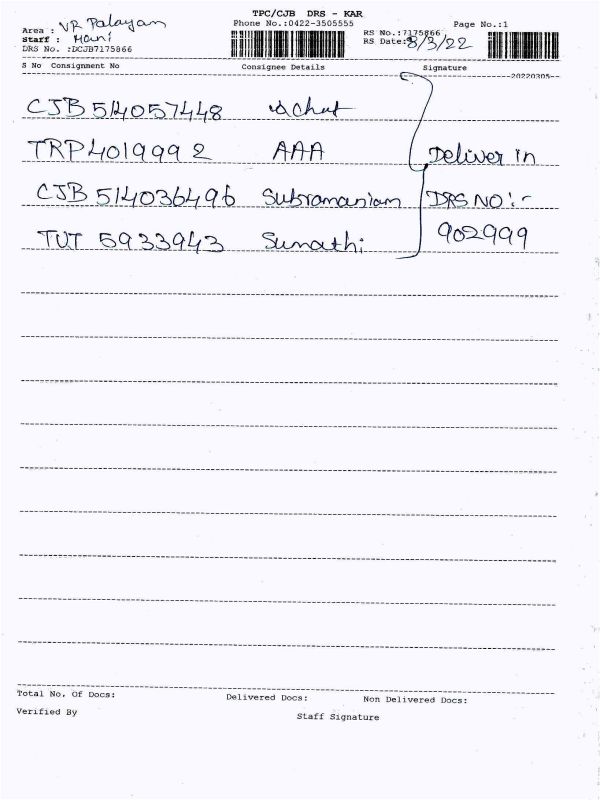 TPC/CJB DRS - KAR
Area : VR Palayam Phone No.:0422-3505555 Page No.:1
Staff : Mani RS No.:7175866
DRS No. :DCJB7175866 RS Date: 8/3/22
S No Consignment No Consignee Details Signature
20220305
CJB 514057448
TRP 4019999 2 AAA Deliver in
CJB 514036496 Subramaniam DRS NO:-
TUT 5933943 Sumathi 902999
Total No. Of Docs: Delivered Docs: Non Delivered Docs:
Verified By Staff Signature